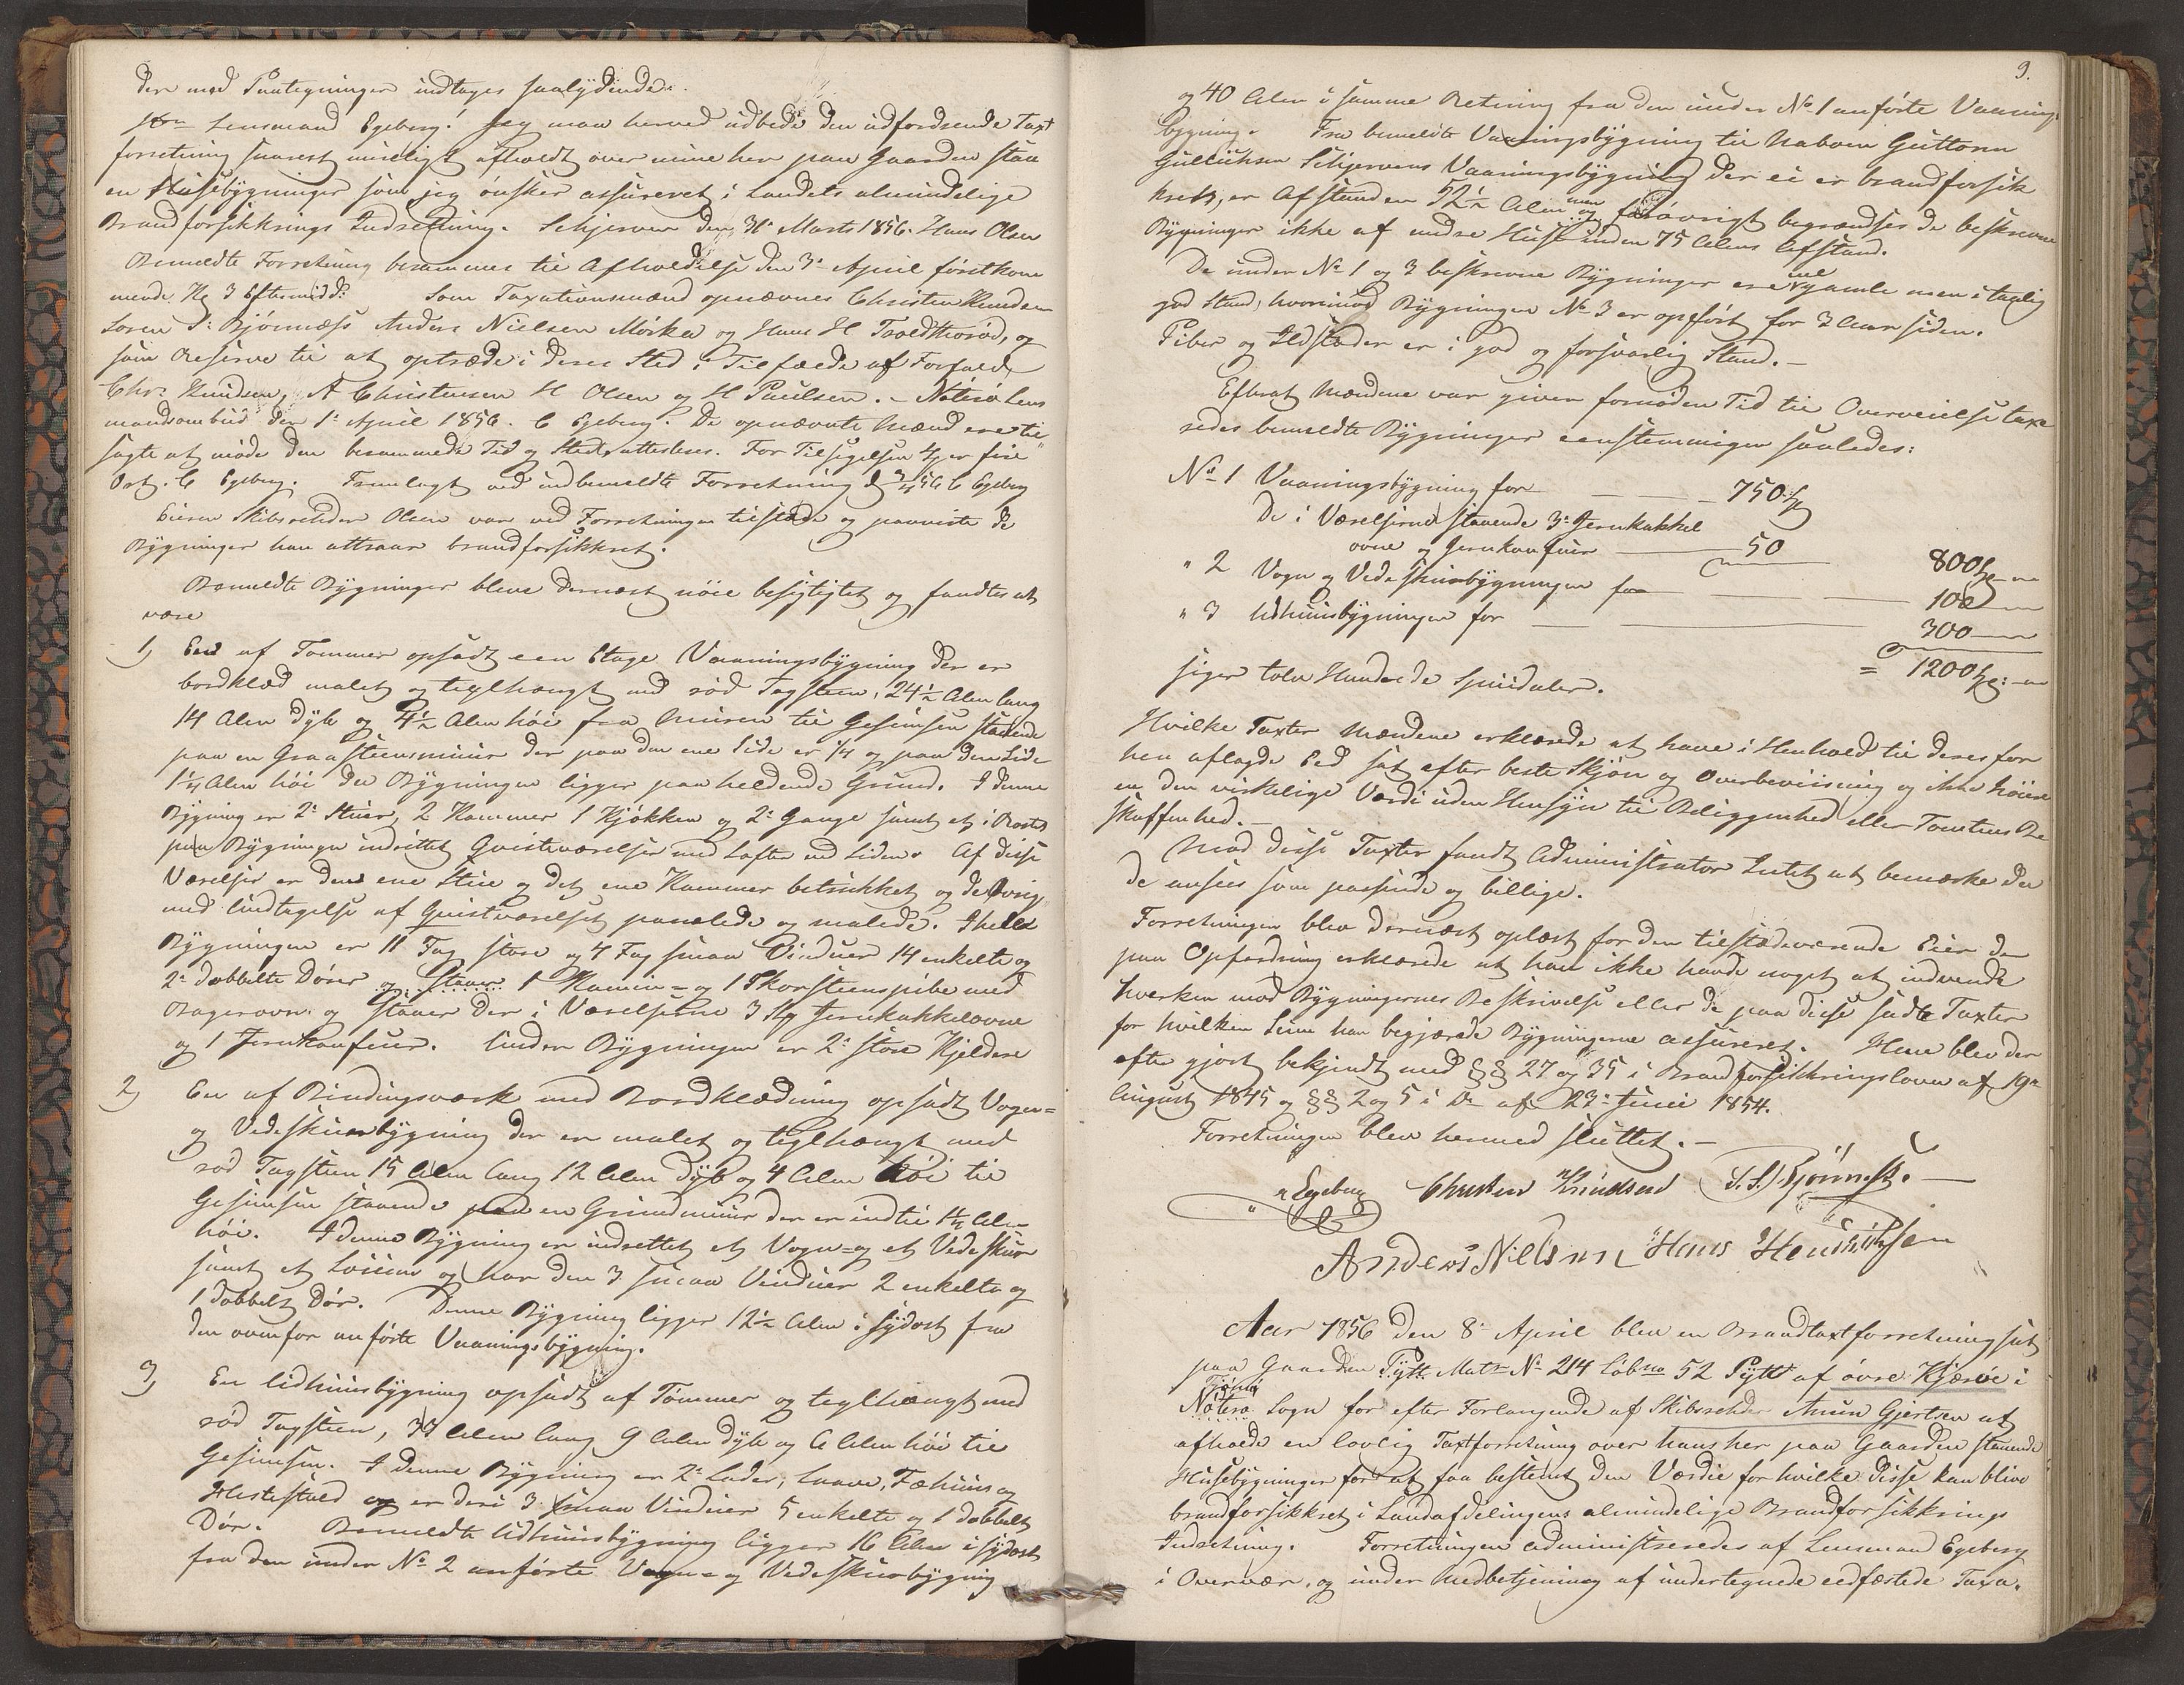 der med Paategninger indtages saalydende:
Hrr Lensmand Egeberg! Jeg maa herved udbede den udfordrende Taxt
forretning snarest mueligt afholdt over mine her paa Gaarden staa
ende Huusebygninger som jeg ønsker assureret i Landets almindelige
Brandforsikkrings Indretning. Schjerven den 31te Marts 1856. Hans Olsen
Bemeldte Forretning berammes til Afholdelse den 3die April førstkom
mende Kl 3 Eftermidd: Som Taxationsmænd opnævnes Christen Knudsen
Søren S. Bjønnæss Anders Nielsen Mørka og Hans H Trældthorød, og
som Reserve til at optræde i deres Sted i Tilfælde af Forfald
Chr. Knudsen, A Christensen H Olsen og H Paulsen. – Nøterø Lens
mandsombud den 1ste April 1856. C Egeberg. De opnævnte Mænd ere til
sagte at møde den berammede Tid og Sted, attesteres. For Tilsigelsen er fire
Ort. C Egeberg. Fremlagt ved indbemeldte Forretning d 3/4 56 C Egeberg
Eieren Skibsrheder Olsen var ved Forretningen tilstede og paaviste de
Bygninger han attraar brandforsikkret.
Bemeldte Bygninger bleve dernæst nøie besigtiget og fandtes at
være
1) En af Tømmer opsadt een Etage Vaaningsbygning der er
bordklæd malet og teglhængt med rød Tagsteen, 24½ Alen lang
14 Alen dyb og 4½ Alen høi fra Muren til Gesimsen staaende
paa en Graasteensmuur der paa den ene Side er ¼ og paa den Side
1¼ Alen høi da Bygningen ligger paa heldende Grund. I denne
Bygning er 2de Stuer, 2 Kammer 1 Kjøkken og 2de Gange samt et i
paa Bygningen indrettet Qvistværelse med Lofter ved Siderne. Af disse
Værelser er den ene Stue og det ene Kammer betrukket og de Øvrig
med Undtagelse af Qvistværelset panelede og malede. I hele
Bygningen er 11 Fag store og 4 Fag smaa Vinduer 14 enkelte og
2de dobbelte Dører og Staaer 1 Kamin- og 1 Skorsteenspibe med
Bagerovn og staaer der i Værelserne 3 Jernkakkelovne
og 1 Jernkomfuur. Under Bygningen er 2de store Kjeldere
2) En af Bindingsværk med Bordklædning opsadt Vogn-
og Vedeskuurbygning der er malet og teglhængt med
rød Tagsteen 15 Alen lang 12 Alen dyb og 4 Alen høi til
Gesimsen staaende paa en Grundmuur der er indtil 1½ Alen
høi. I denne Bygning er indrettet et Vogn- og et Vedeskuur
samt et og har den 3 smaa Vinduer 2 enkelte og
1 dobbelt Dør. Denne Bygning ligger 12½ Alen i sydost fra
den ovenfor anførte Vaaningsbygning.
3) En Udhuusbygning opsadt af Tømmer og teglhængt med
rød Tagsteen, 33 Alen lang 9 Alen dyb og 6 Alen høi til
Gesimsen. I denne Bygning er 2de Lader, Laave, Fæhuus og
Hestestald og er deri 3 smaa Vinduer 5 enkelte og 1 dobbelt
Dør. Bemeldte Udhuusbygning ligger 16 Alen i sydost
fra den under No 2 anførte Vogn- og Vedeskuurbygning
9.
og 40 Alen i samme Retning fra den under No 1 anførte Vaanings
bygning. Fra bemeldte Vaaningsbygning til Naboen Guttorm
Gulliksen Schjervens Vaaningsbygning der ei er brandforsik
kret, er Afstanden 52½ Alen men forøvrigt begrændses de beskrevne
Bygninger ikke af andre Huse inden 75 Alens Afstand.
De under No 1 og 3 beskrevne Bygninger ere vel gamle men i taalig
god Stand, hvorimod Bygningen No 3 er opført for 3 Aar siden.
Piber og Ildsteder er i god og forsvarlig Stand. –
Efterat Mændene var given fornøden Tid til Overveielse taxe
redes bemeldte Bygninger eenstemmigen saaledes:
No 1 Vaaningsbygning for – – – 750
De i Værelserne staaende 3de Jernkakkel
ovne og Jernkomfuur – 50
800
" 2 Vogn og Vedeskuurbygningen for – – 100
" 3 Udhuusbygningen for – – 300
= 1200
siger tolv Hundrede Speciedaler.
Hvilke Taxter Mændene erklærede at have i Henhold til deres for
hen aflagde Eed sat efter beste Skjøn og Overbeviisning og ikke høiere
en den virkelige Værdi uden Hensyn til Beliggenhed eller Tomtens Be
skaffenhed. –
Mod disse Taxter fandt Administrator Intet at bemærke da
de ansees som passende og billige.
Forretningen blev dernæst oplæst for den tilstedeværende Eier der
paa Opfordring erklærede at han ikke havde noget at indvende
hverken mod Bygningernes Beskrivelse eller de paa disse sadte Taxter
for hvilken Sum han begjærede Bygningerne assureret. Han blev der
efter gjort bekjendt med §§ 27 og 35 i Brandforsikkringsloven af 19de
August 1845 og §§ 2 og 5 i Do af 23de Juni 1854.
Forretningen blev hermed sluttet. –
C Egeberg Christen Knudsen S. S. Bjønnæss. –
Anders Nilsen Hans Hendriksen
Aar 1856 den 8de April blev en Brandtaxtforretning sat
paa Gaarden Pytt Matr No 214 Løbno 52 Pytt af øvre Kjærøe i
Tjømø
Nøterø Sogn for efter Forlangende af Skibsrheder Anun Gjertsen at
afholde en lovlig Taxtforretning over hans her paa Gaarden staaende
Huusebygninger for at faa bestemt den Værdie for hvilke disse kan blive
brandforsikkret i Landafdelingens almindelige Brandforsikkrings
Indretning. Forretningen administreredes af Lensmand Egeberg
i Overvær, og under Medbetjening af undertegnede eedfæstede Taxa-